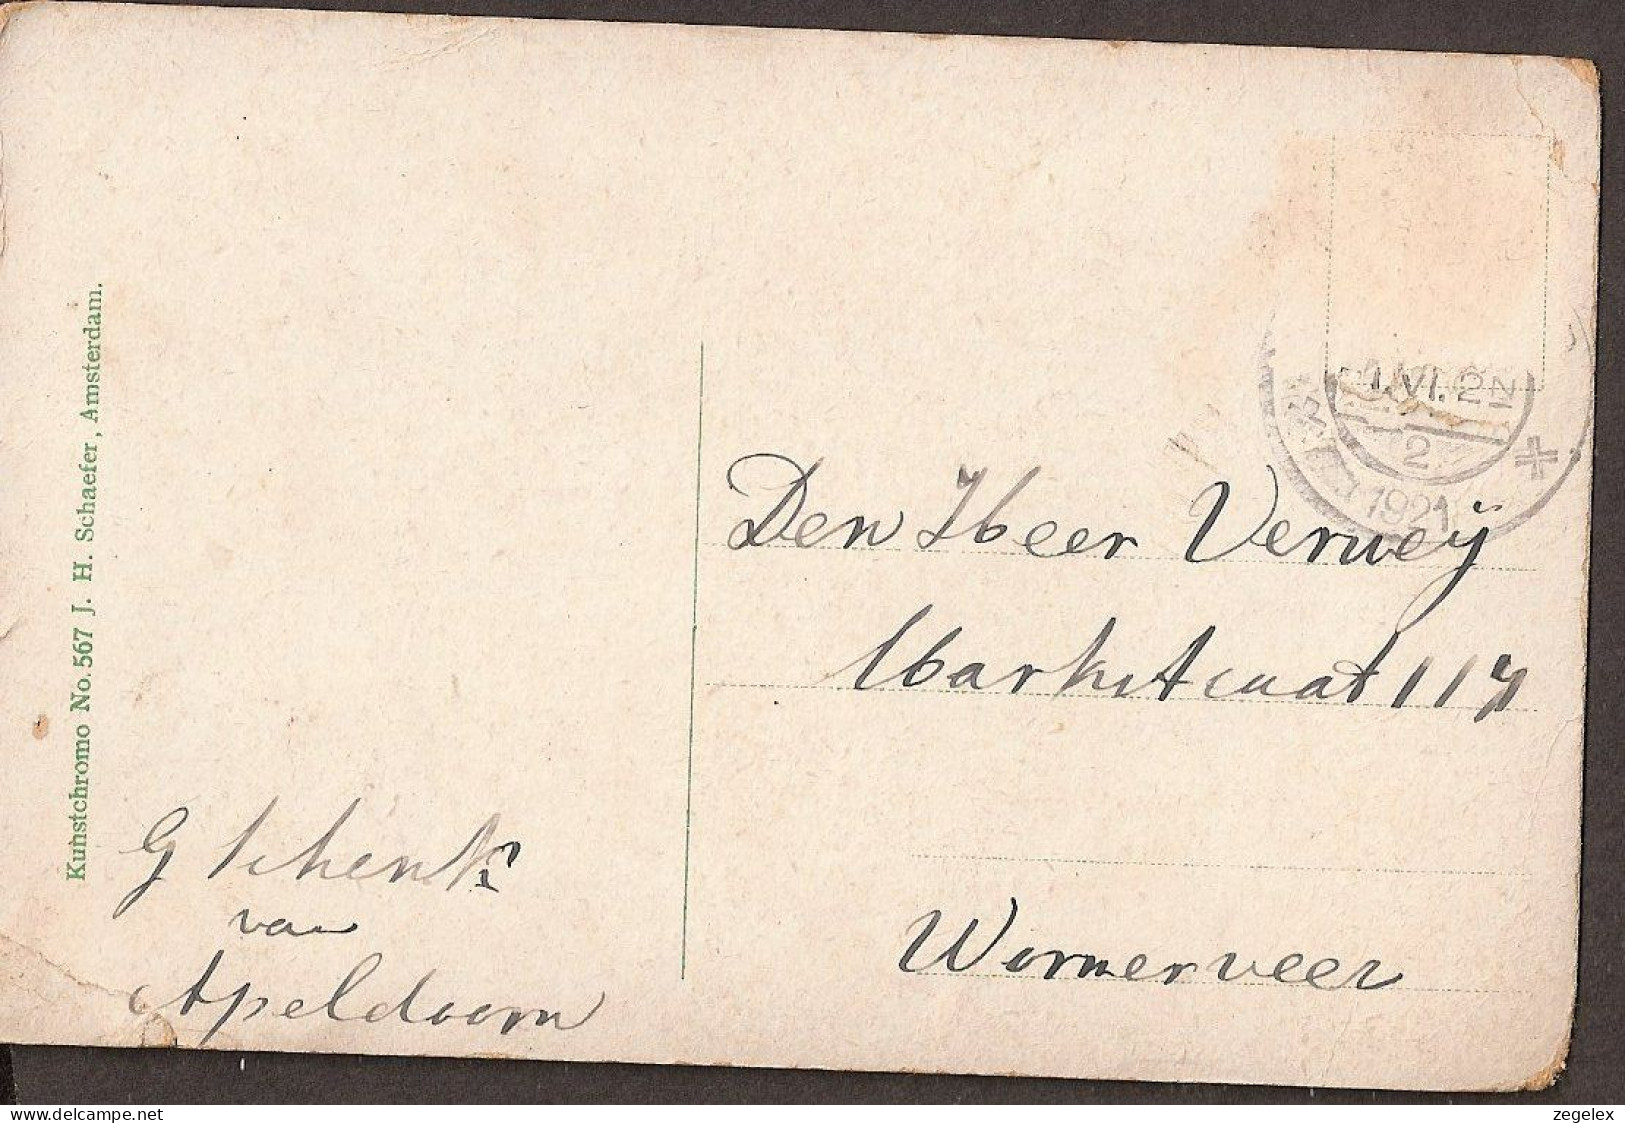 Kunstchromo No. 567 J. H. Schaefer, Amsterdam.
1.VI.2 N
2
1921
Den Heer Verweij
Markstraat 117
Wormerveer
G Schenk
van
Apeldoorn
delcampe.net
zegelex